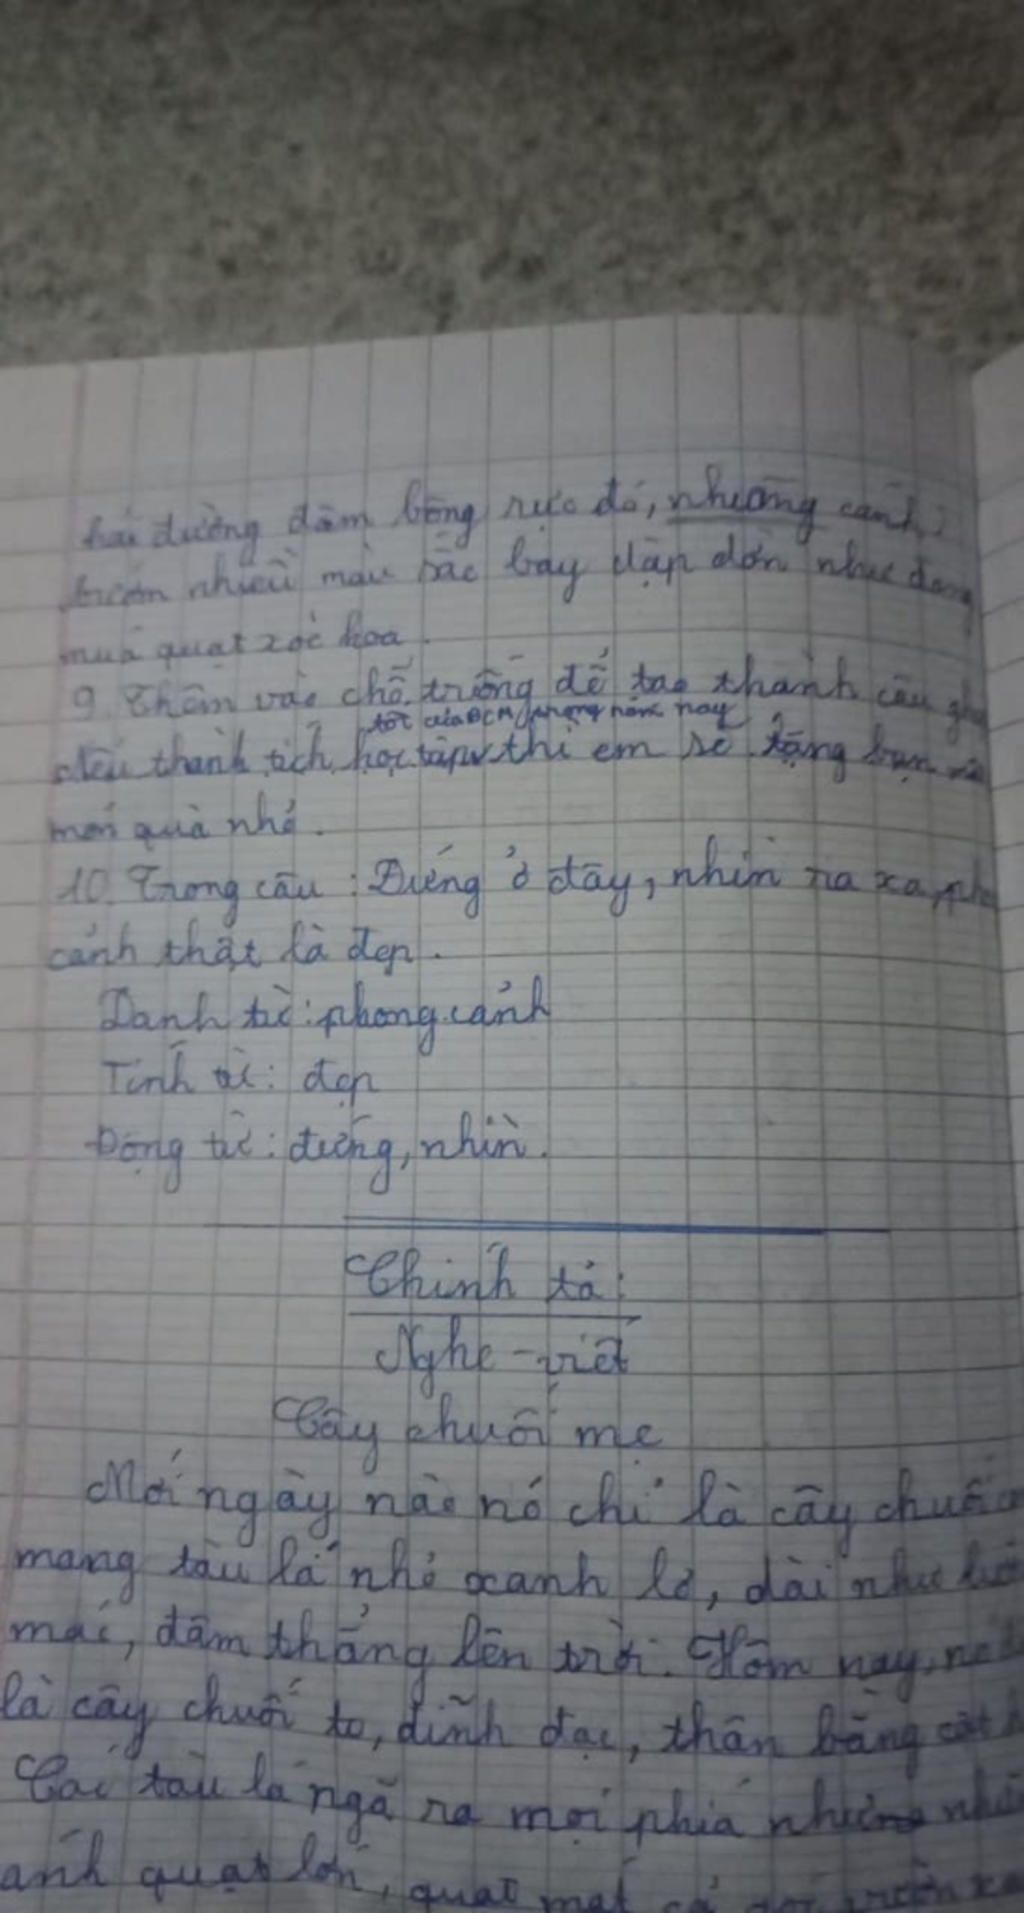 hải đường đâm bông rực đỏ, những cánh
bướm nhiều màu sắc bay dập dờn như đang
múa quạt xoè hoa.
9. Thêm vào chỗ trống để tạo thành câu
tốt của BCM trong năm nay
Nếu thành tích học tập v thì em sẽ tặng bạn
món quà nhỏ.
10. Trong câu: Đứng ở đây, nhìn ra xa,
cảnh thật là đẹp.
Danh từ: phong cảnh
Tính từ: đẹp
Động từ: đứng, nhìn.
Chính tả:
Nghe-viết
Cây chuối mẹ
Mới ngày nào nó chỉ là cây chuối
mang tàu lá nhỏ xanh lơ, dài như
mác, đâm thẳng lên trời. Hôm nay, nó
là cây chuối to, đĩnh đạc, thân bằng cột
Các tàu lá ngả ra mọi phía như
anh quạt lớn, quạt mát cả